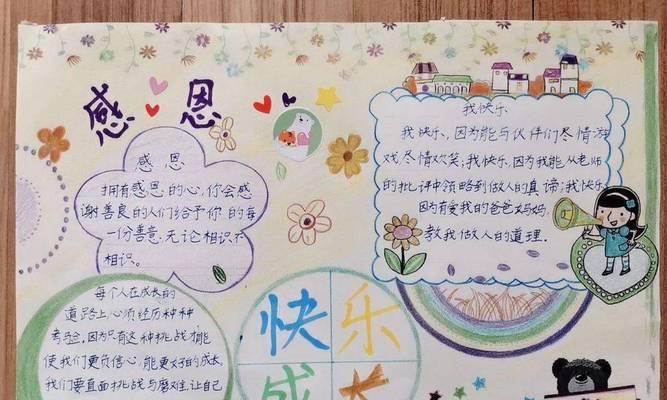 感恩
感恩
拥有感恩的心,你会感
谢善良的人们给予你的每
一份善意,无论相识不
相识。
我快乐
我快乐,因为能与伙伴们尽情游
戏尽情欢笑;我快乐,因为我能从老师
的批评中领略到做人的真谛;我快乐
因为有爱我的爸爸妈妈,
教我做人的道理.
每个人在成长的
道路上心须经历种种
考验,因为只有这种挑战才能
使我们更负信心,能更好的成长
我们要直面挑战与磨难,让自己
快乐
成长